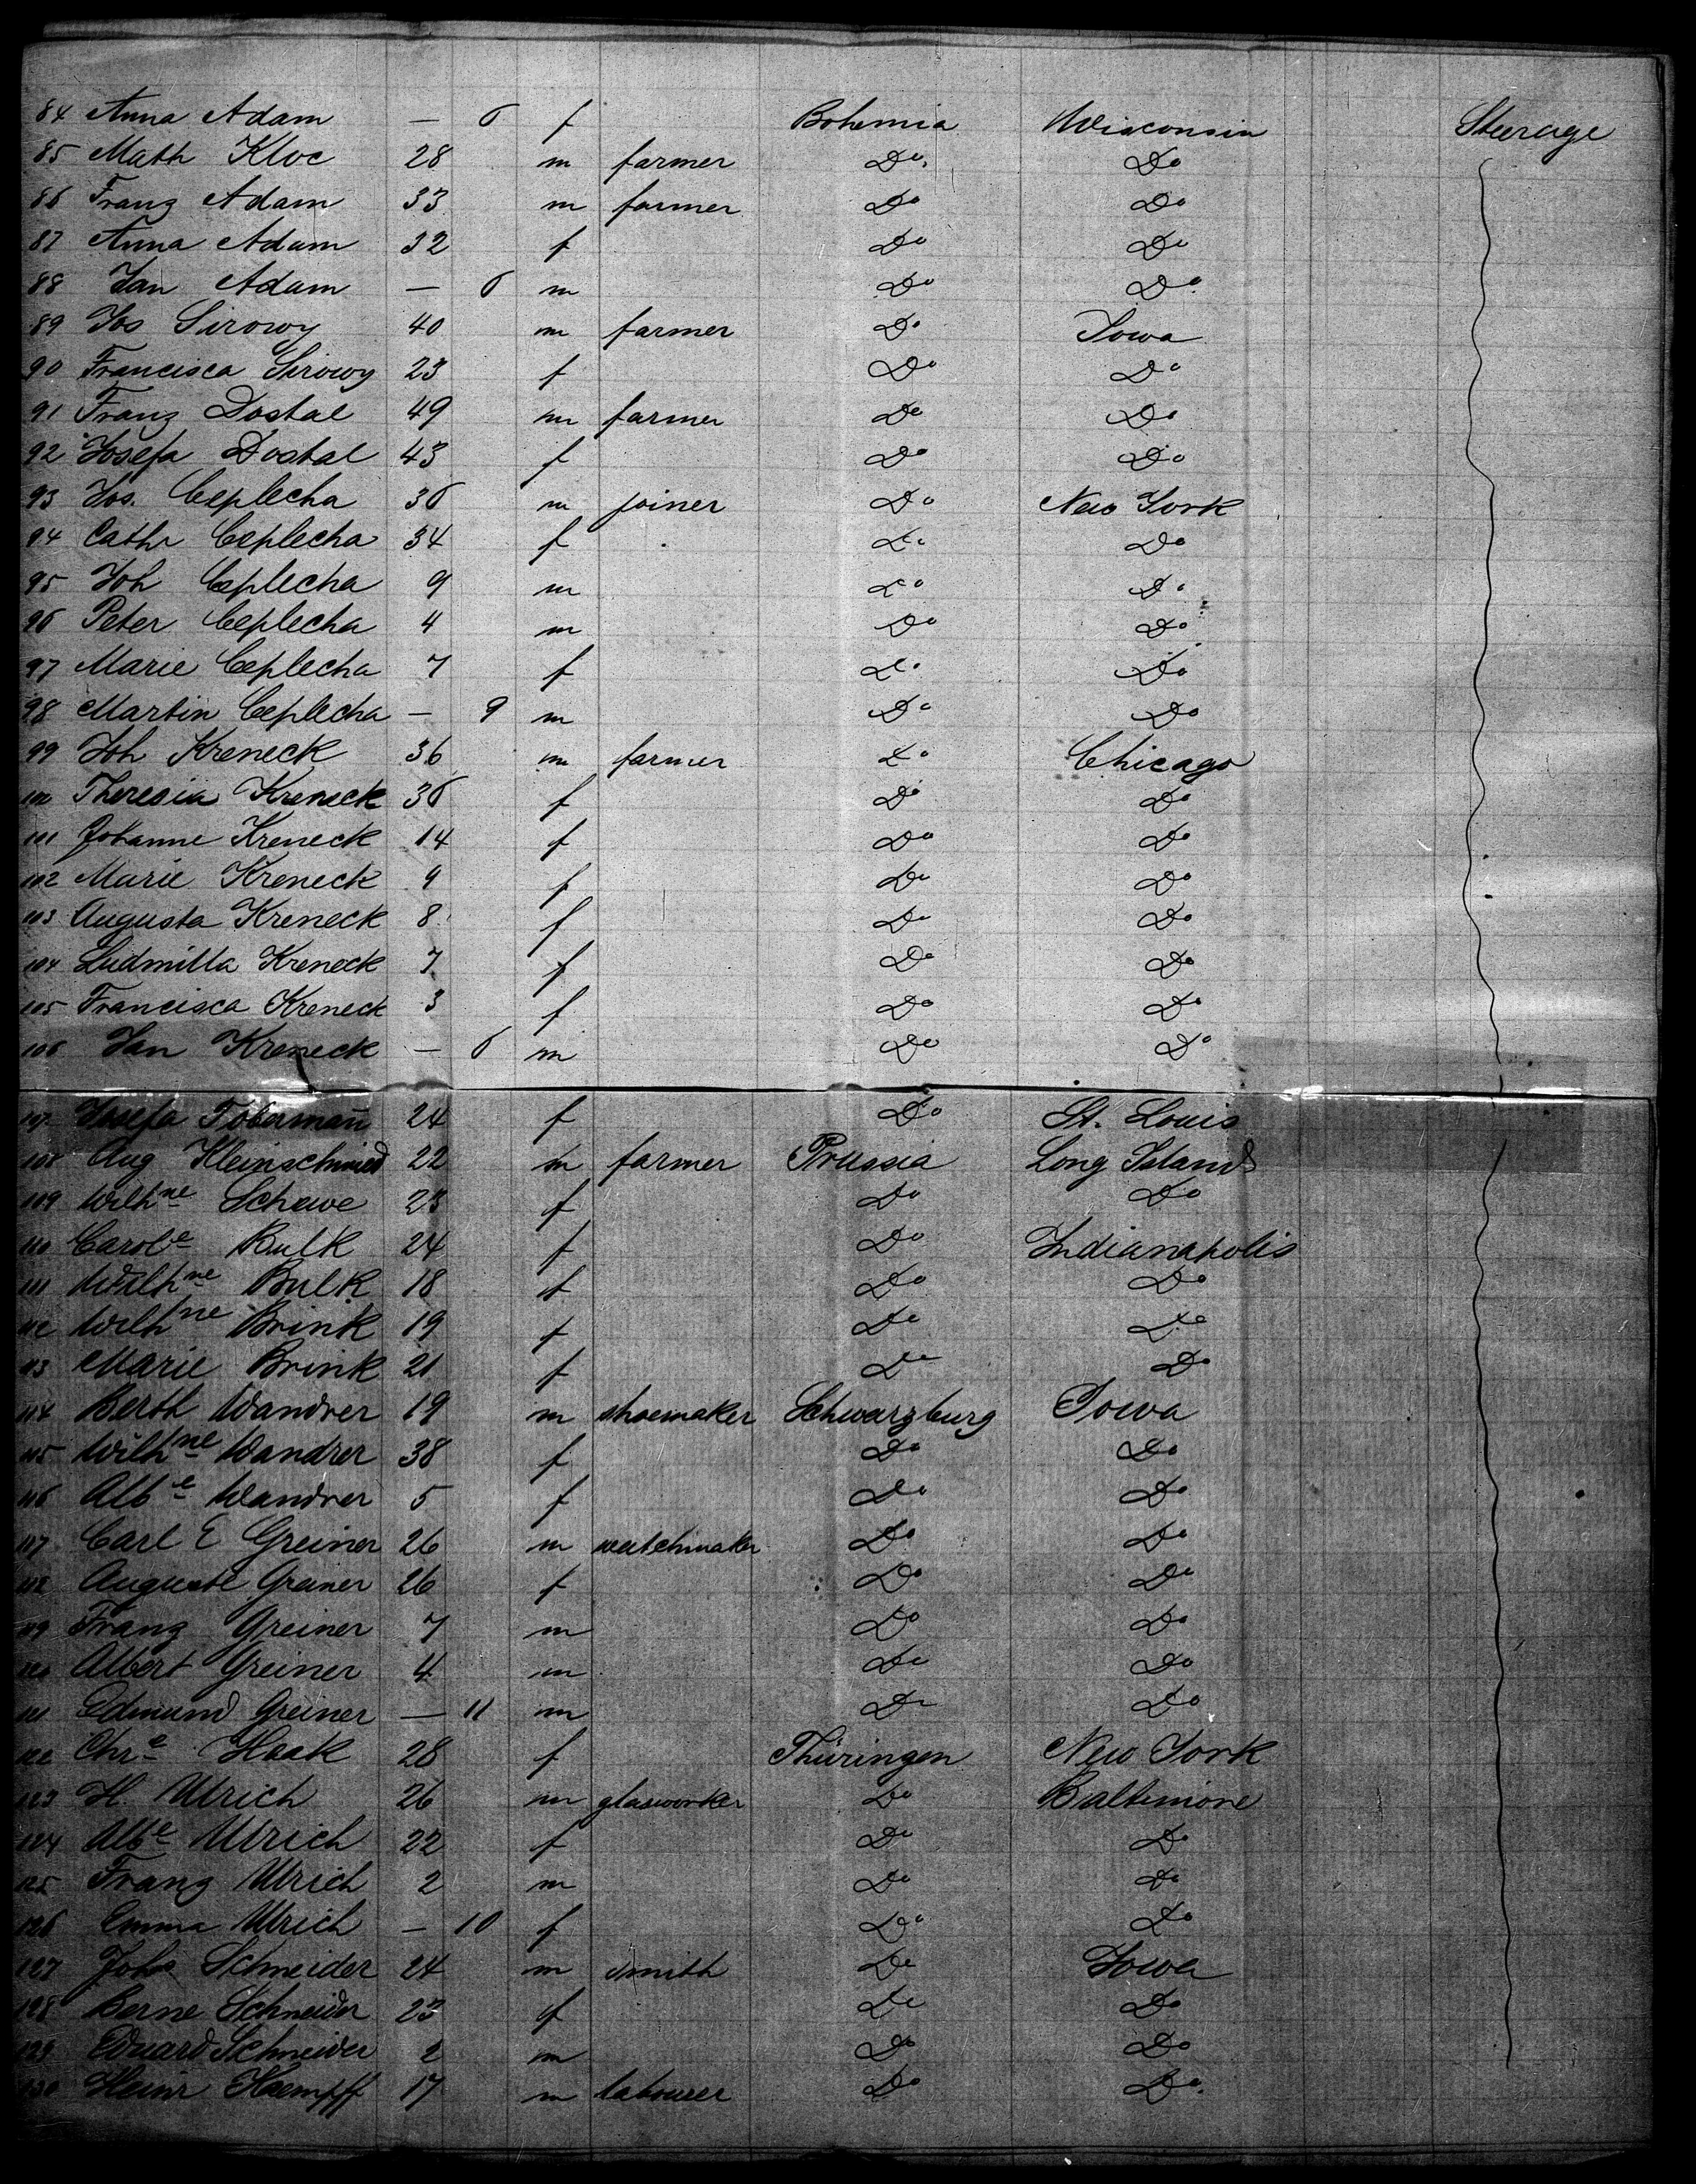 84 Anna Adam — 6 f Bohemia Wisconsin Steerage
85 Math Kloc 28 m farmer Do. Do
86 Franz Adam 33 m farmer Do Do
87 Anna Adam 32 f Do Do
88 Jan Adam — 6 m Do Do
89 Jos Sirowy 40 m farmer Do Iowa
90 Francisca Sirowy 23 f Do Do
91 Franz Dostal 49 m farmer Do Do
92 Josefa Dostal 43 f Do Do
93 Jos. Ceplecha 36 m joiner Do New York
94 Cathr Ceplecha 34 f Do Do
95 Joh Ceplecha 9 m Do Do
96 Peter Ceplecha 4 m Do Do
97 Marie Ceplecha 7 f Do Do
98 Martin Ceplecha — 9 m Do Do
99 Joh Kreneck 36 m farmer Do Chicago
100 Theresia Kreneck 36 f Do Do
101 Johanne Kreneck 14 f Do Do
102 Marie Kreneck 9 f Do Do
103 Augusta Kreneck 8 f Do Do
104 Ludmilla Kreneck 7 f Do Do
105 Francisca Kreneck 3 f Do Do
106 Jan Kreneck — 6 m Do Do
107 Josefa Tobermañ 24 f Do St. Louis
108 Aug Kleinschmied 22 m farmer Prussia Long Island
109 Wilhne Schewe 23 f Do Do
110 Carole Bulk 24 f Do Indianapolis
111 Wilhne Bulk 18 f Do Do
112 Wilhne Brink 19 f Do Do
113 Marie Brink 21 f Do Do
114 Berth Wandrer 19 m shoemaker Schwarzburg Iowa
115 Wilhne Wandrer 38 f Do Do
116 Albe Wandrer 5 f Do Do
117 Carl E Greiner 26 m watchmaker Do Do
118 Auguste Greiner 26 f Do Do
119 Franz Greiner 7 m Do Do
120 Albert Greiner 4 m Do Do
121 Edmund Greiner — 11 m Do Do
122 Chre Haak 28 f Thüringen New York
123 H. Ulrich 26 m glasworker Do Baltimore
124 Albe Ulrich 22 f Do Do
125 Franz Ulrich 2 m Do Do
126 Emma Ulrich — 10 f Do Do
127 Johs Schneider 24 m smith Do Iowa
128 Berne Schneider 23 f Do Do
129 Eduard Schneider 2 m Do Do
130 Heinr Haempff 17 m labourer Do Do.